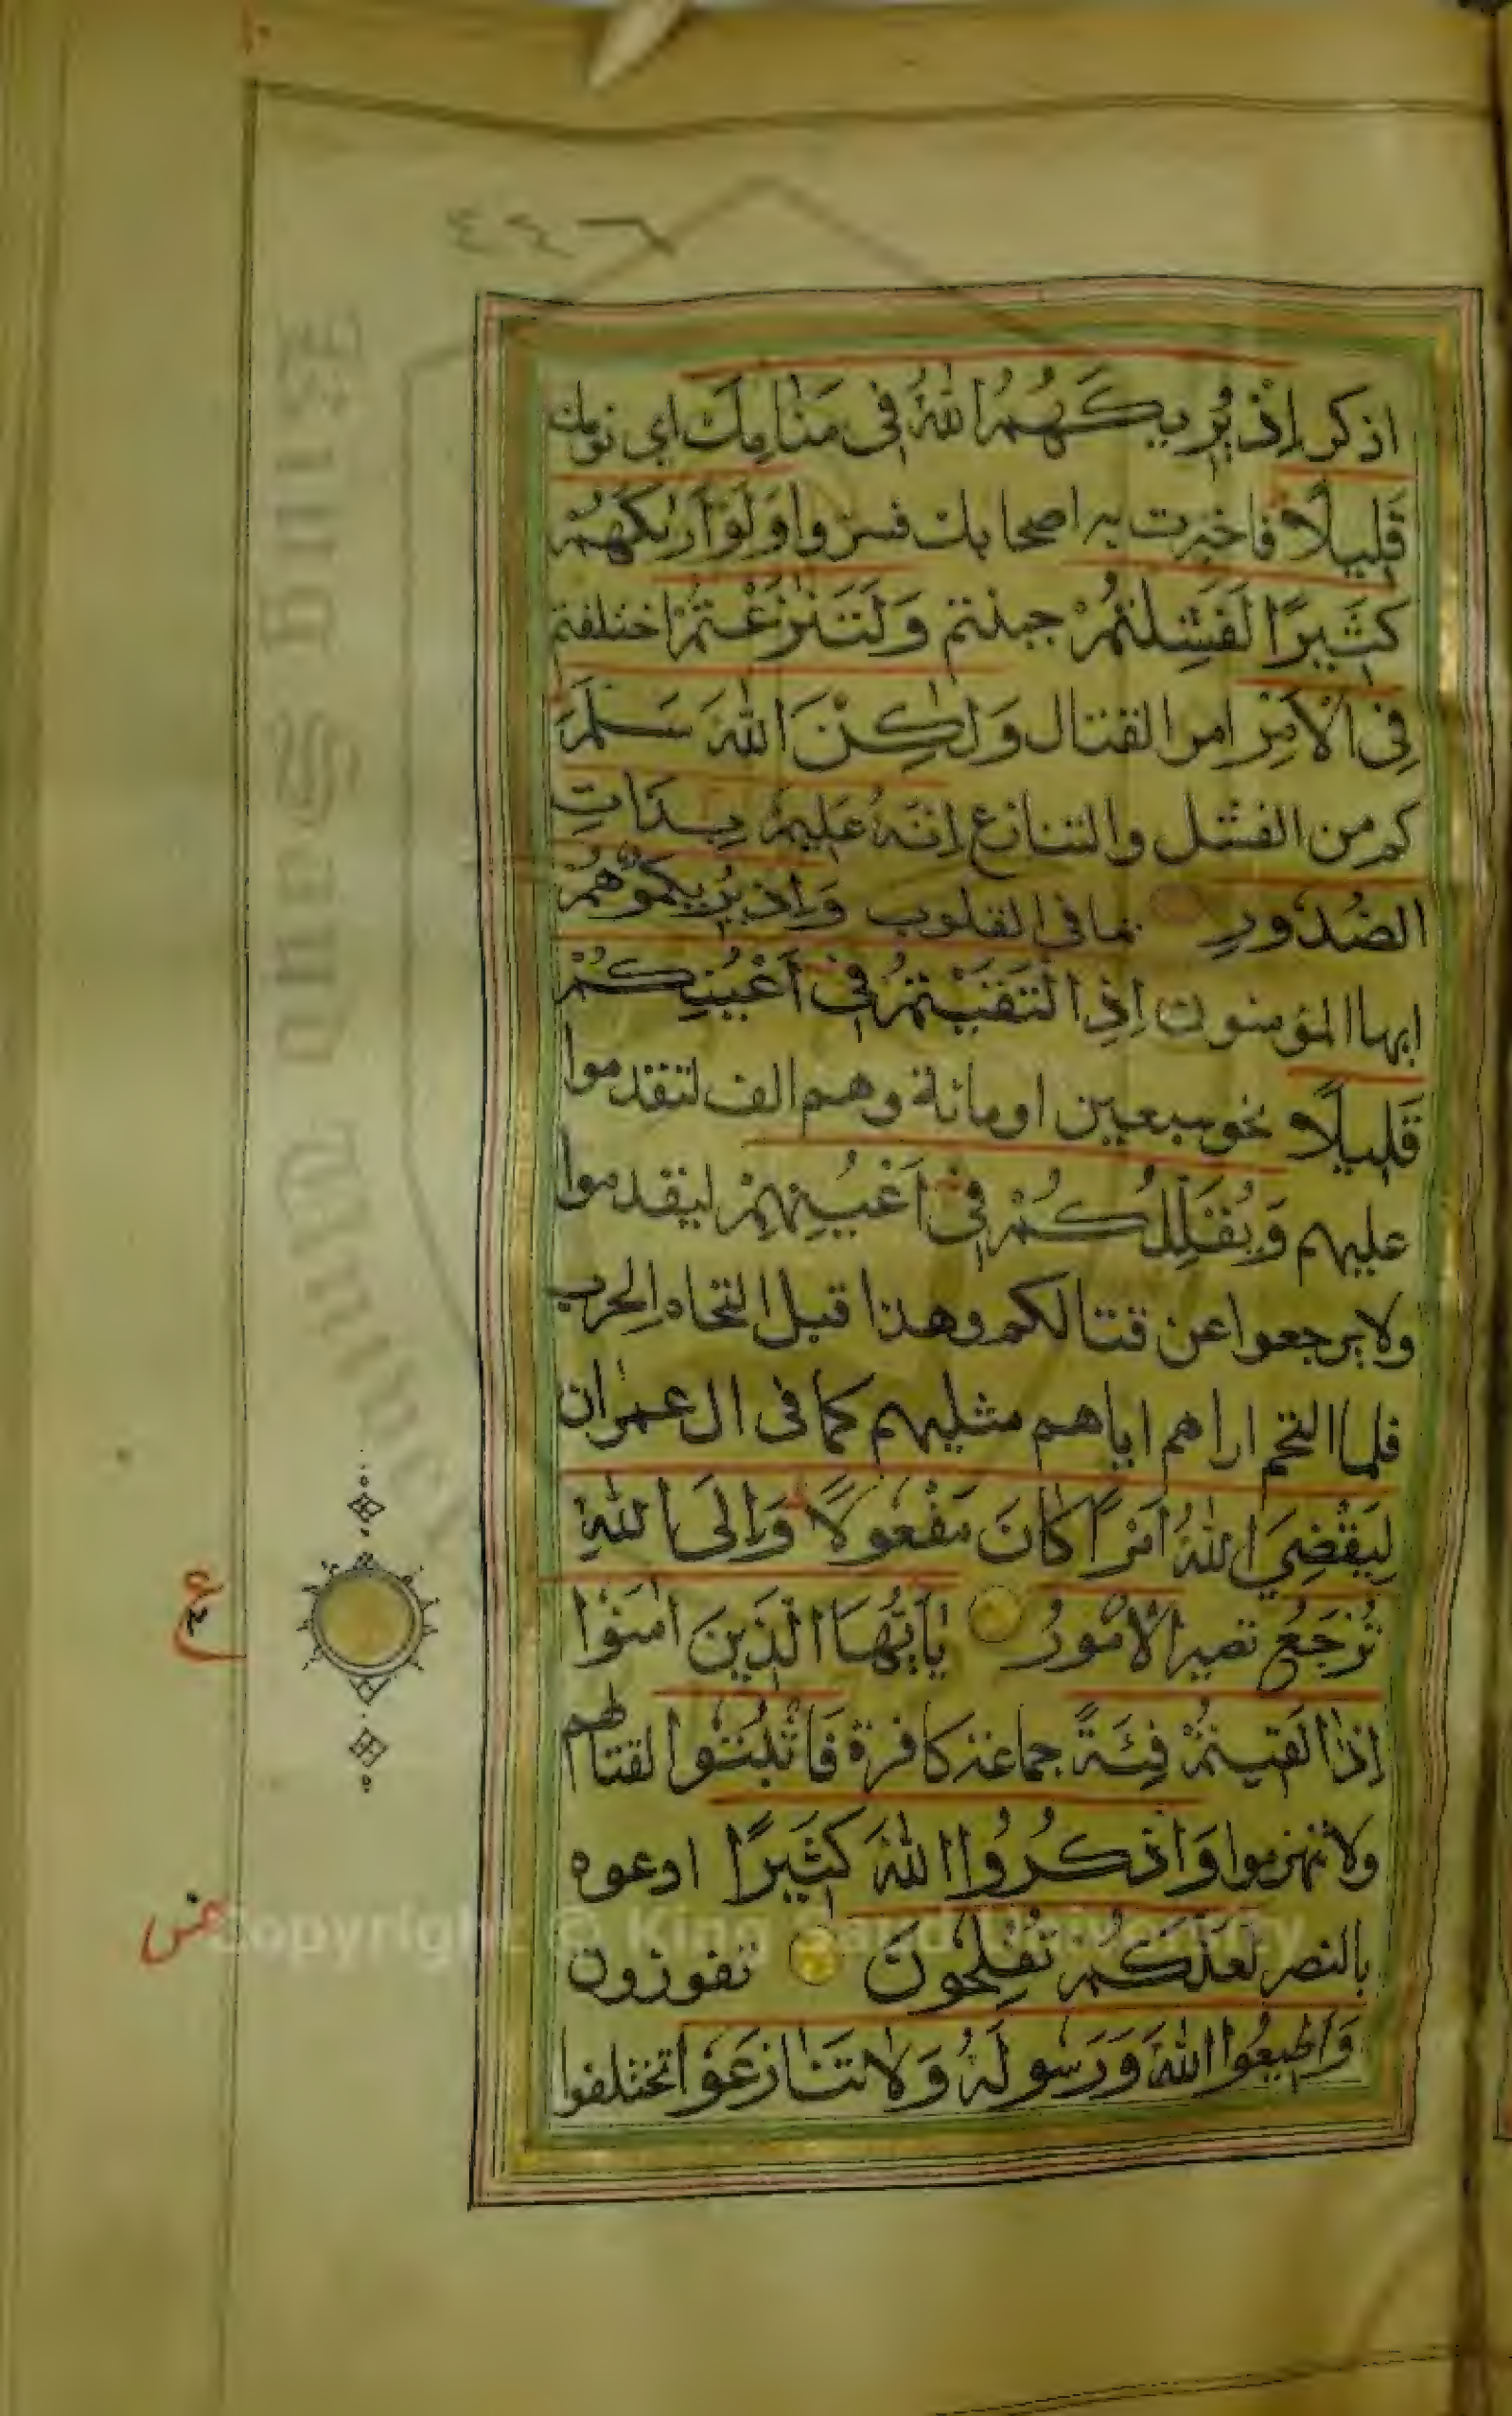 ١٠
٤٤٦
اذكر إِذْ يُرِيكَهُمُ اللّٰهُ فِى مَنَامِكَ اي نومك
قَلِيلًا فاخبرت به اصحابك فسروا وَلَوْ أَرٰىكَهُمْ
كَثِيرًا لَفَشِلْتُمْ جبنتم وَلَتَنٰزَعْتُمْ اختلفتم
فِى الْأَمْرِ امر القتال وَلٰكِنَّ اللّٰهَ سَلَّمَ
كم من الفشل والتنازع إِنَّهُ عَلِيمٌ بِذَاتِ
الصُّدُورِ بما فى القلوب وَإِذْ يُرِيكُمُوهُمْ
ايها المؤمنون إِذِ الْتَقَيْتُمْ فِى أَعْيُنِكُمْ
قَلِيلًا نحو سبعين او مائة وهم الف لتقدموا
عليهم وَيُقَلِّلُكُمْ فِى أَعْيُنِهِمْ ليقدموا
ولا يرجعوا عن قتالكم وهذا قبل التحام الحرب
فلما التحم اراهم اياهم مثليهم كما فى ال عمران
لِيَقْضِيَ اللّٰهُ أَمْرًا كَانَ مَفْعُولًا وَإِلَى اللّٰهِ
تُرْجَعُ تصير الْأُمُورُ يٰأَيُّهَا الَّذِينَ اٰمَنُوا
إِذَا لَقِيتُمْ فِئَةً جماعة كافرة فَاثْبُتُوا لقتالهم
ولا تنهزموا وَاذْكُرُوا اللّٰهَ كَثِيرًا ادعوه
بالنصر لَعَلَّكُمْ تُفْلِحُونَ تفوزون
وَأَطِيعُوا اللّٰهَ وَرَسُولَهُ وَلَا تَنَازَعُوا تختلفوا
ع
Copyright © King Saud University